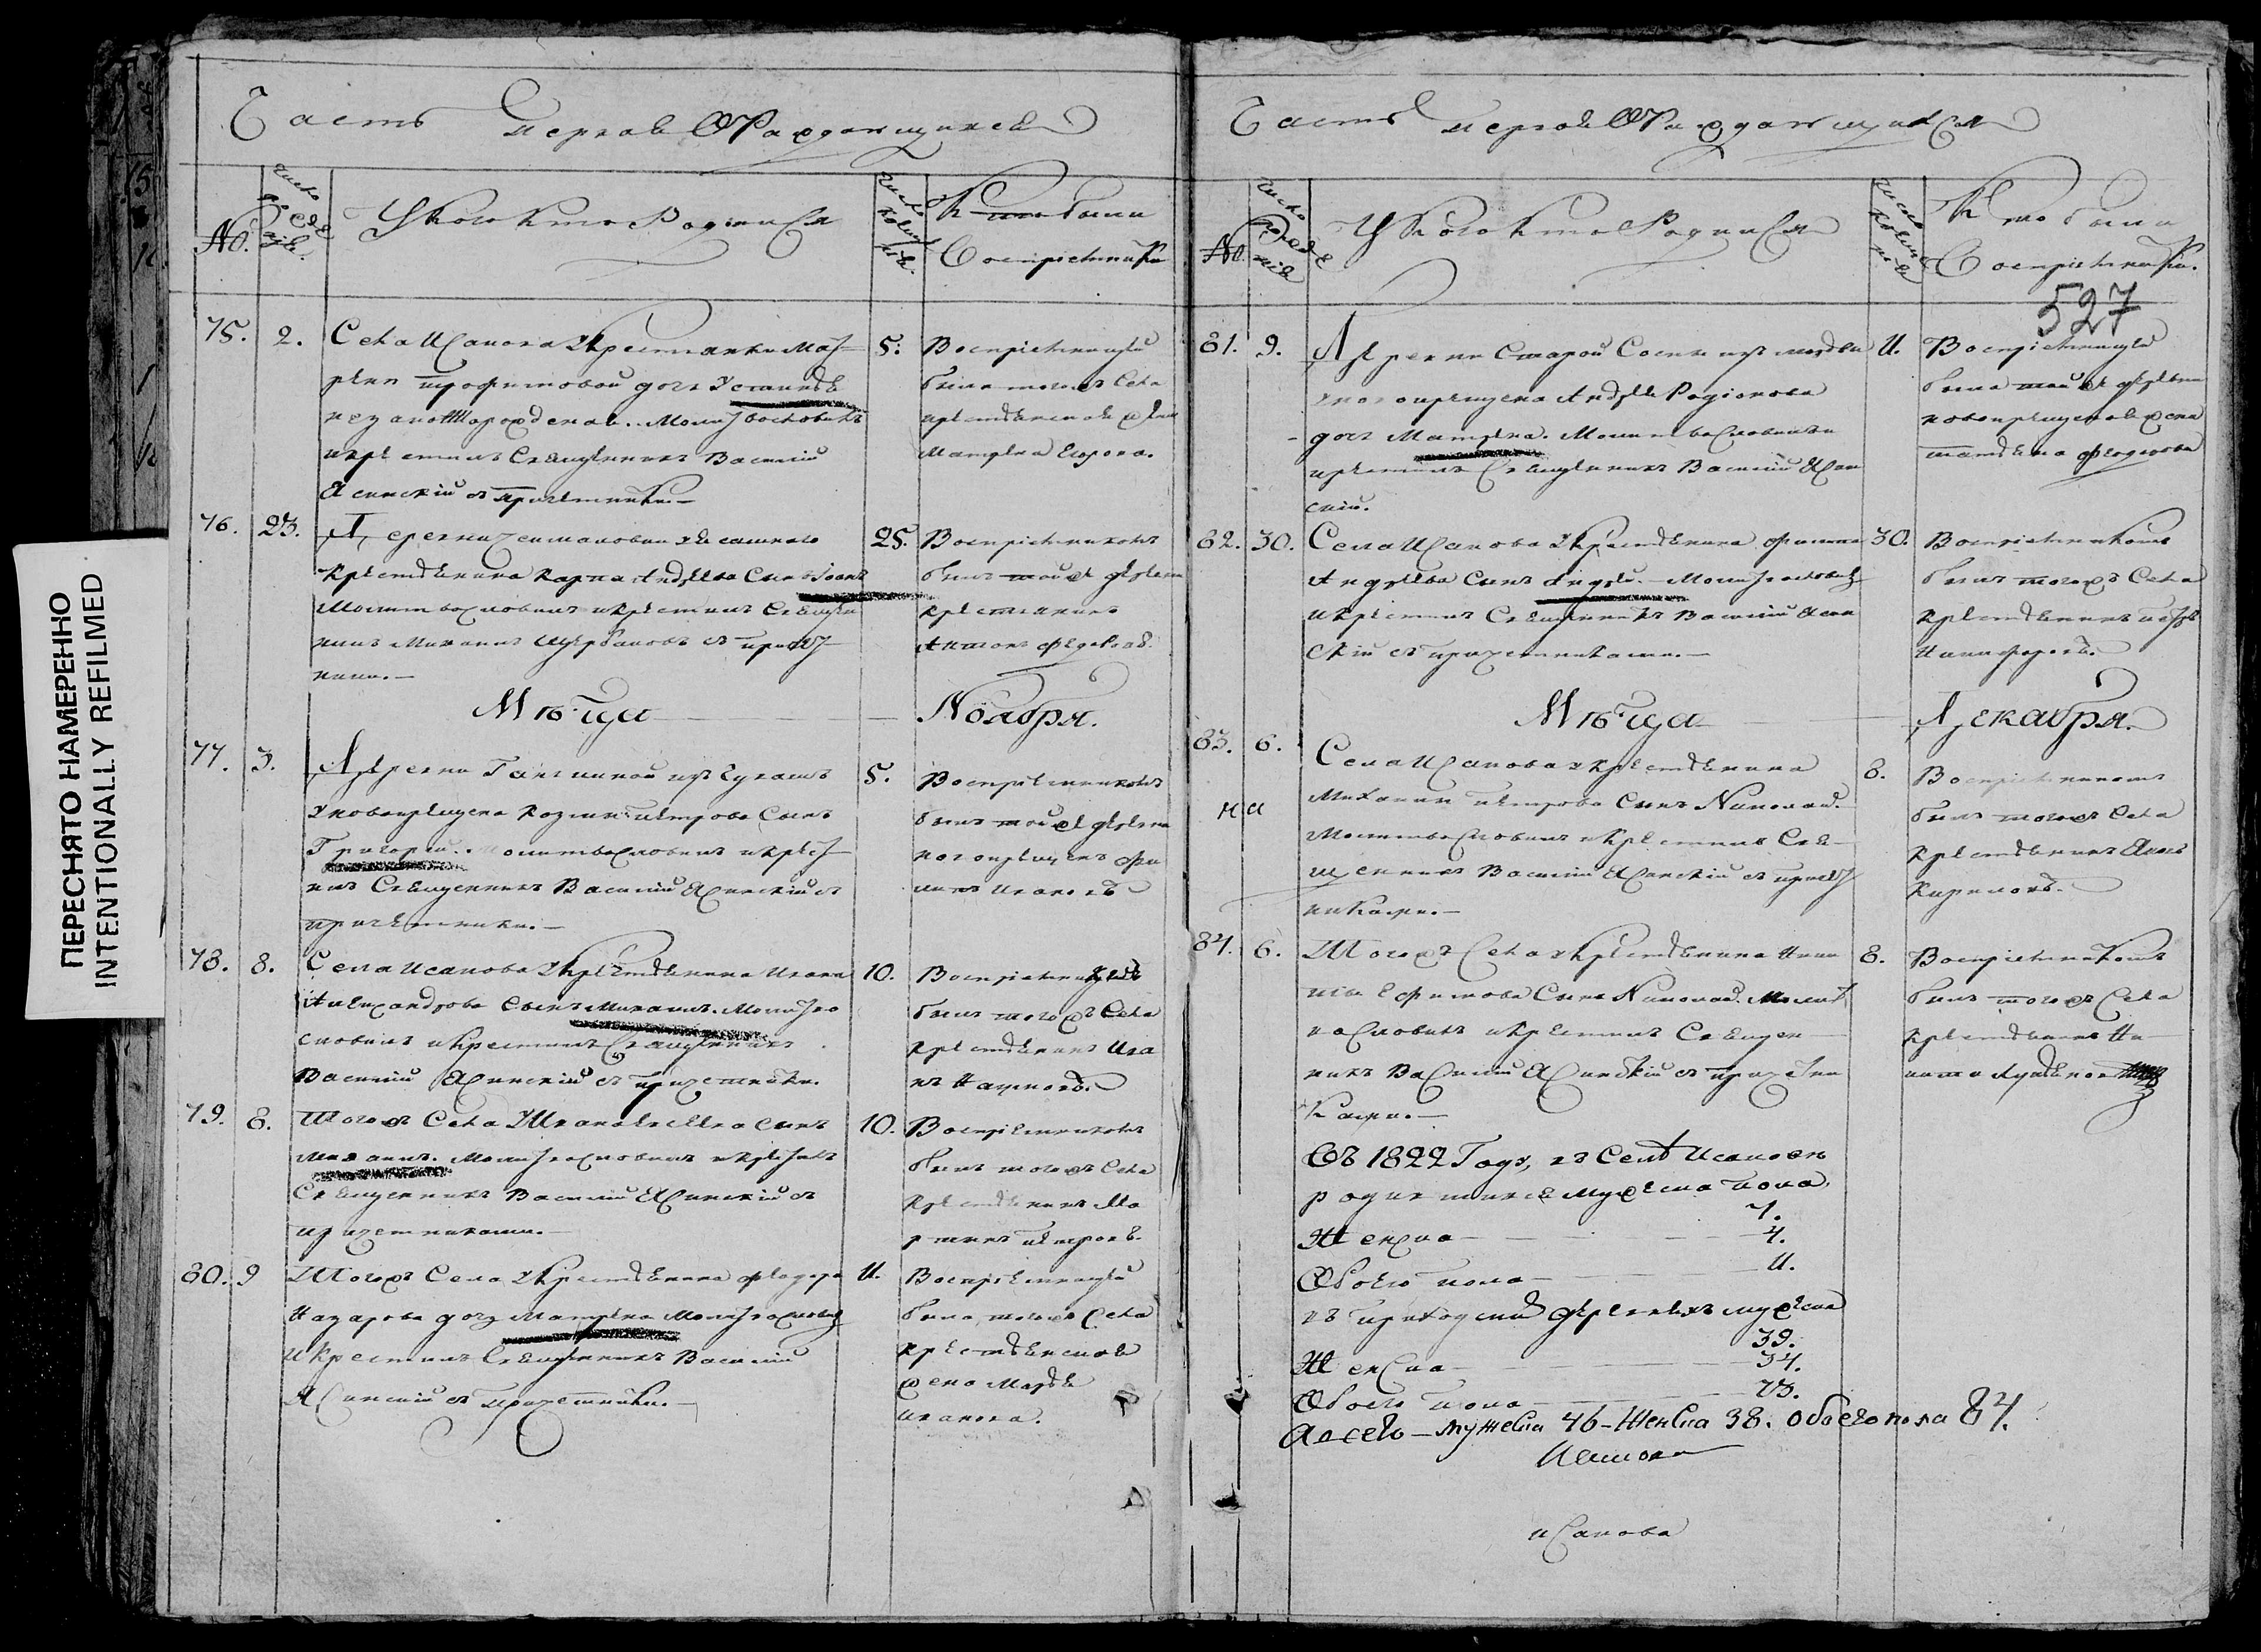 ПЕРЕСНЯТО НАМЕРЕННО
INTENTIONALLY REFILMED
Часть первая О Раждающихся
№.
число рожденія.
У кого кто Родился
число крещенія.
Кто были
Воспріемники
75. 2.
Села Исанова у крестьянки Мав-
ры Трофимовой дочь Устинья
незаконнорожденая. Молитвословилъ
и крестилъ Священникъ Василій
Ясинскій съ причетники.
5.
Воспріемницей
была тогожъ Села
крестьянская жена
Матрена Егорова.
76. 23.
крестьянина Карпа Андреева Сынъ Іоаннъ
Молитвословилъ и крестилъ Священ
никъ Михаилъ Щербаковъ съ причет
ники.
25.
Воспріемникомъ
былъ тойже деревни
крестьянинъ
Антонъ Федоровъ.
Мѣсяца Ноября.
77. 3.
Деревни Ганькиной изъ Чувашъ
у новокрещена Козмы Петрова Сынъ
Григорій. Молитвословилъ и крести
лъ Священникъ Василій Ясинскій съ
причетники.
5.
Воспріемникомъ
былъ тойже деревни
новокрещенъ Фи
липъ Ивановъ
78. 8.
Села Исанова у крестьянина Ивана
Александрова Сынъ Михаилъ. Молитво
словилъ и крестилъ Священникъ
Василій Ясинскій съ причетники.
10.
Воспріемникомъ
былъ тогожъ Села
крестьянинъ Ива
нъ
79. 8.
Тогожъ Села у сынъ
Михаилъ. Молитвословилъ и крестилъ
Священникъ Василій Ясинскій съ
причетниками.
10.
Воспріемникомъ
былъ тогожъ Села
крестьянинъ Ма
ртинъ Петровъ.
80. 9
Тогожъ Села у крестьянина Федора
Назарова дочь Матрена Молитвословилъ
и крестилъ Священникъ Василій
Ясинскій съ причетники.
11.
Воспріемницей
была тогожъ Села
крестьянская
жена Марья
Иванова.
Часть первая О Раждающихся
№.
число рожденія
У кого кто Родился
число крещенія
Кто были
Воспріемники.
527
81. 9.
Деревни Старой Сосны изъ мордвы
у новокрещена Андрея Родіонова
дочь Матрена. Молитвословилъ и
крестилъ Священникъ Василій Ясин
скій.
11.
Воспріемницей
была тойже деревни
новокрещеная жена
Татьяна Феодорова
82. 30.
Села Исанова у крестьянина Филипа
Андреева Сынъ Андрей. Молитвословилъ
и крестилъ Священникъ Василій Ясин
скій съ причетниками.
30.
Воспріемникомъ
былъ тогожъ Села
крестьянинъ Петръ
Никифоровъ.
Мѣсяца Декабря.
83. 6.
Села Исанова у крестьянина
Михаила Петрова Сынъ Николай.
Молитвословилъ и крестилъ Свя-
щенникъ Василій Ясинскій съ причет
никами.
8.
Воспріемникомъ
былъ тогожъ Села
крестьянинъ Яковъ
Кириловъ.
84. 6.
Тогожъ Села у крестьянина Ники
ты Ефимова Сынъ Николай. Молит
вословилъ и крестилъ Священ
никъ Василій Ясинскій съ причетни
ками.
8.
Воспріемникомъ
былъ тогожъ Села
крестьянинъ Ни
кита Лукьяновъ
Въ 1822 Году, въ Селѣ Исановѣ
родившихся мужеска пола
7.
Женска 4.
Обоего пола 11.
въ приходскихъ деревняхъ мужеска
39.
Женска 34.
Обоего пола 73.
А всего – мужеска 46 – Женска 38. обоего пола 84.
Исанова